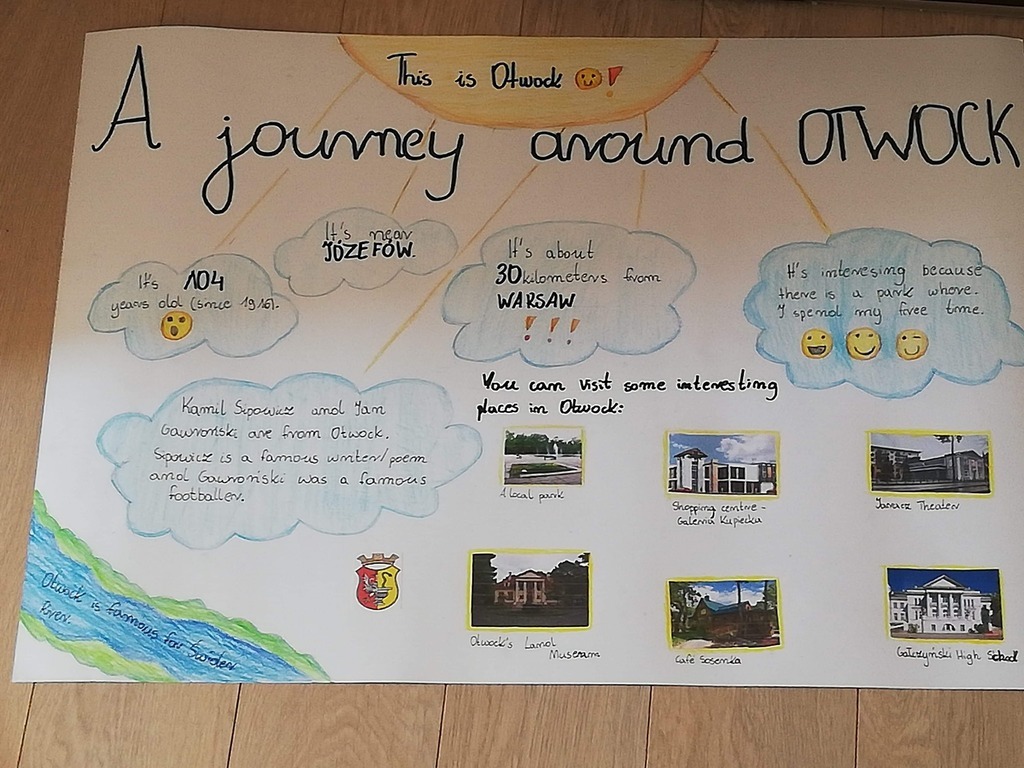 This is Otwock !
A journey around OTWOCK
It's 104
years old (since 1916).
It's near
JÓZEFÓW.
It's about
30 kilometers from
WARSAW
!!!
It's interesing because
there is a park where
I spend my free time.
Kamil Sipowicz and Jan
Gawroński are from Otwock.
Sipowicz is a famous writer/poem
and Gawroński was a famous
footballer.
You can visit some interesting
places in Otwock:
A local park
Shopping centre -
Galeria Kupiecka
Jaracz Theater
Otwock's Land
Museram
Cafe Sosenka
Gałczyński High School
Otwock is famous for Świder
River.